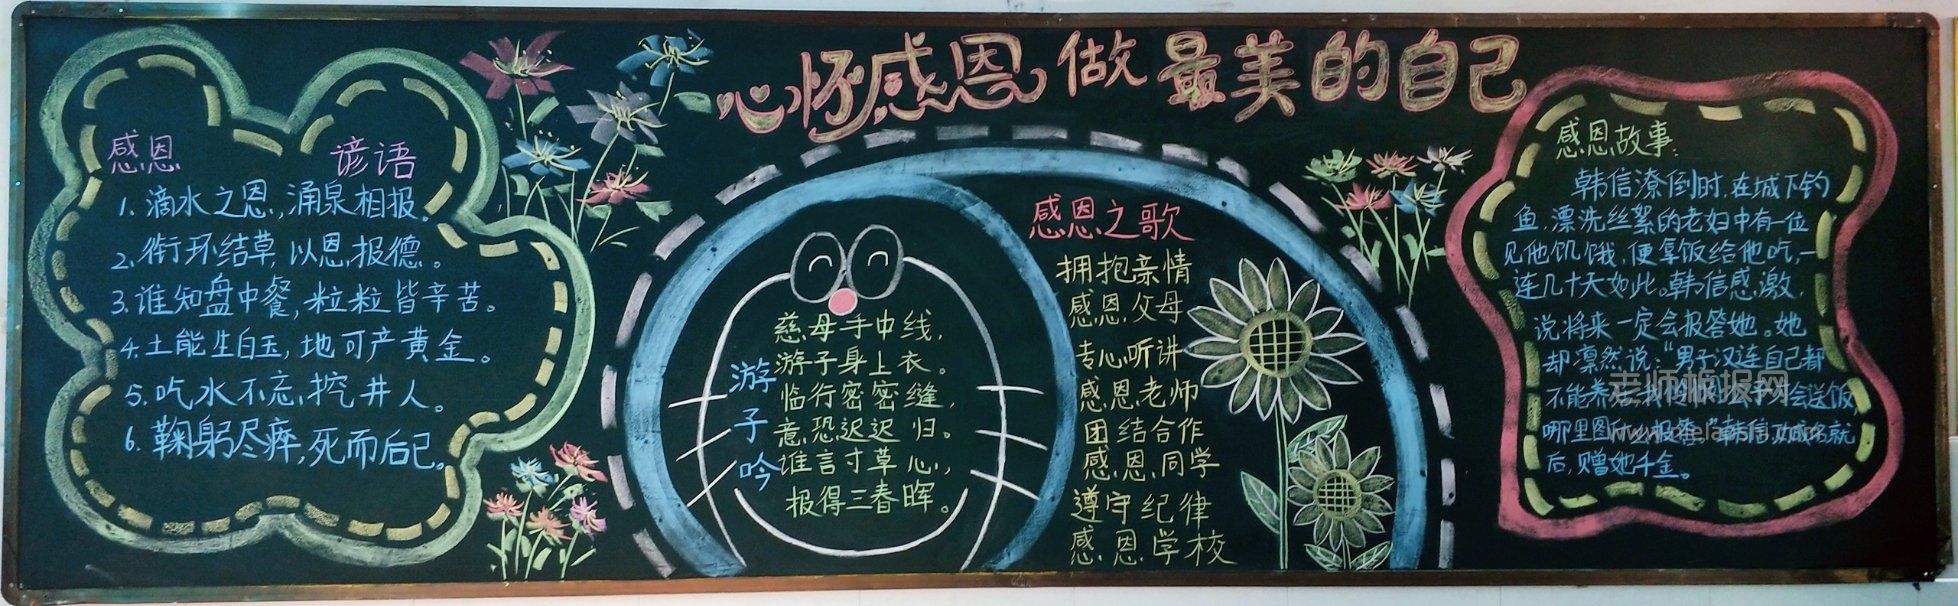 心怀感恩做最美的自己
感恩 谚语
1.滴水之恩,涌泉相报。
2.衔环结草,以恩报德。
3.谁知盘中餐,粒粒皆辛苦。
4.土能生白玉,地可产黄金。
5.吃水不忘挖井人。
6.鞠躬尽瘁,死而后已。
游子吟
慈母手中线,
游子身上衣。
临行密密缝,
意恐迟迟归。
谁言寸草心,
报得三春晖。
感恩之歌
拥抱亲情
感恩父母
专心听讲
感恩老师
团结合作
感恩同学
遵守纪律
感恩学校
感恩故事:
韩信潦倒时,在城下钓
鱼,漂洗丝絮的老妇中有一位
见他饥饿,便拿饭给他吃,一
连几十天如此。韩信感激,
说将来一定会报答她。她
却凛然说:“男子汉连自己都
不能养活,我 会送饭,
哪里图什么报答。”韩信功成名就
后,赠她千金。
老师板报网